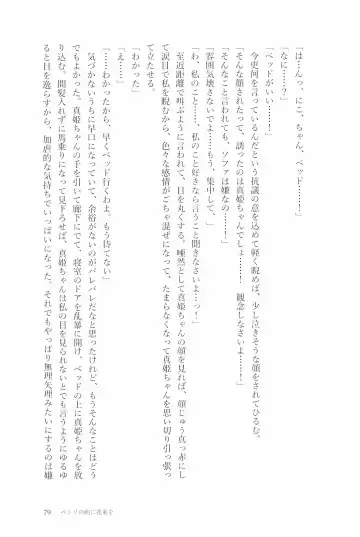 「は…んっ、にこ、ちゃん、ベッド……！」
「なに……？」
「ベッドがいい……！」
今更何を言っているんだという抗議の意を込めて軽く睨めば、少し泣きそうな顔をされてひるむ。
「そんな顔されたって、誘ったのは真姫ちゃんでしょ……！　観念しなさいよ……！」
「そんなこと言われても、ソファは嫌なの……！」
「雰囲気壊さないでよ……もう、集中して、」
「わ、私のこと……私のこと好きなら言うこと聞きなさいよ…っ！」
至近距離で叫ぶように言われて、目を丸くする。唖然として真姫ちゃんの顔を見れば、顔じゅう真っ赤にし
て涙目で私を睨むから、色々な感情がごちゃ混ぜになって、たまらなくなって真姫ちゃんを思い切り引っ張っ
て立たせる。
「わかった」
「え……」
「……わかったから、早くベッド行くわよ。もう待てない」
気づかないうちに早口になっていて、余裕がないのがバレバレだなと思ったけれど、もうそんなことはどう
でもよかった。真姫ちゃんの手を引いて廊下にでて、寝室のドアを乱暴に開け、ベッドの上に真姫ちゃんを放
り込む。間髪入れずに馬乗りになって見下ろせば、真姫ちゃんは私の目を見られないとでも言うようにゆるゆ
ると目を逸らすから、加虐的な気持ちでいっぱいになった。それでもやっぱり無理矢理みたいにするのは嫌
79